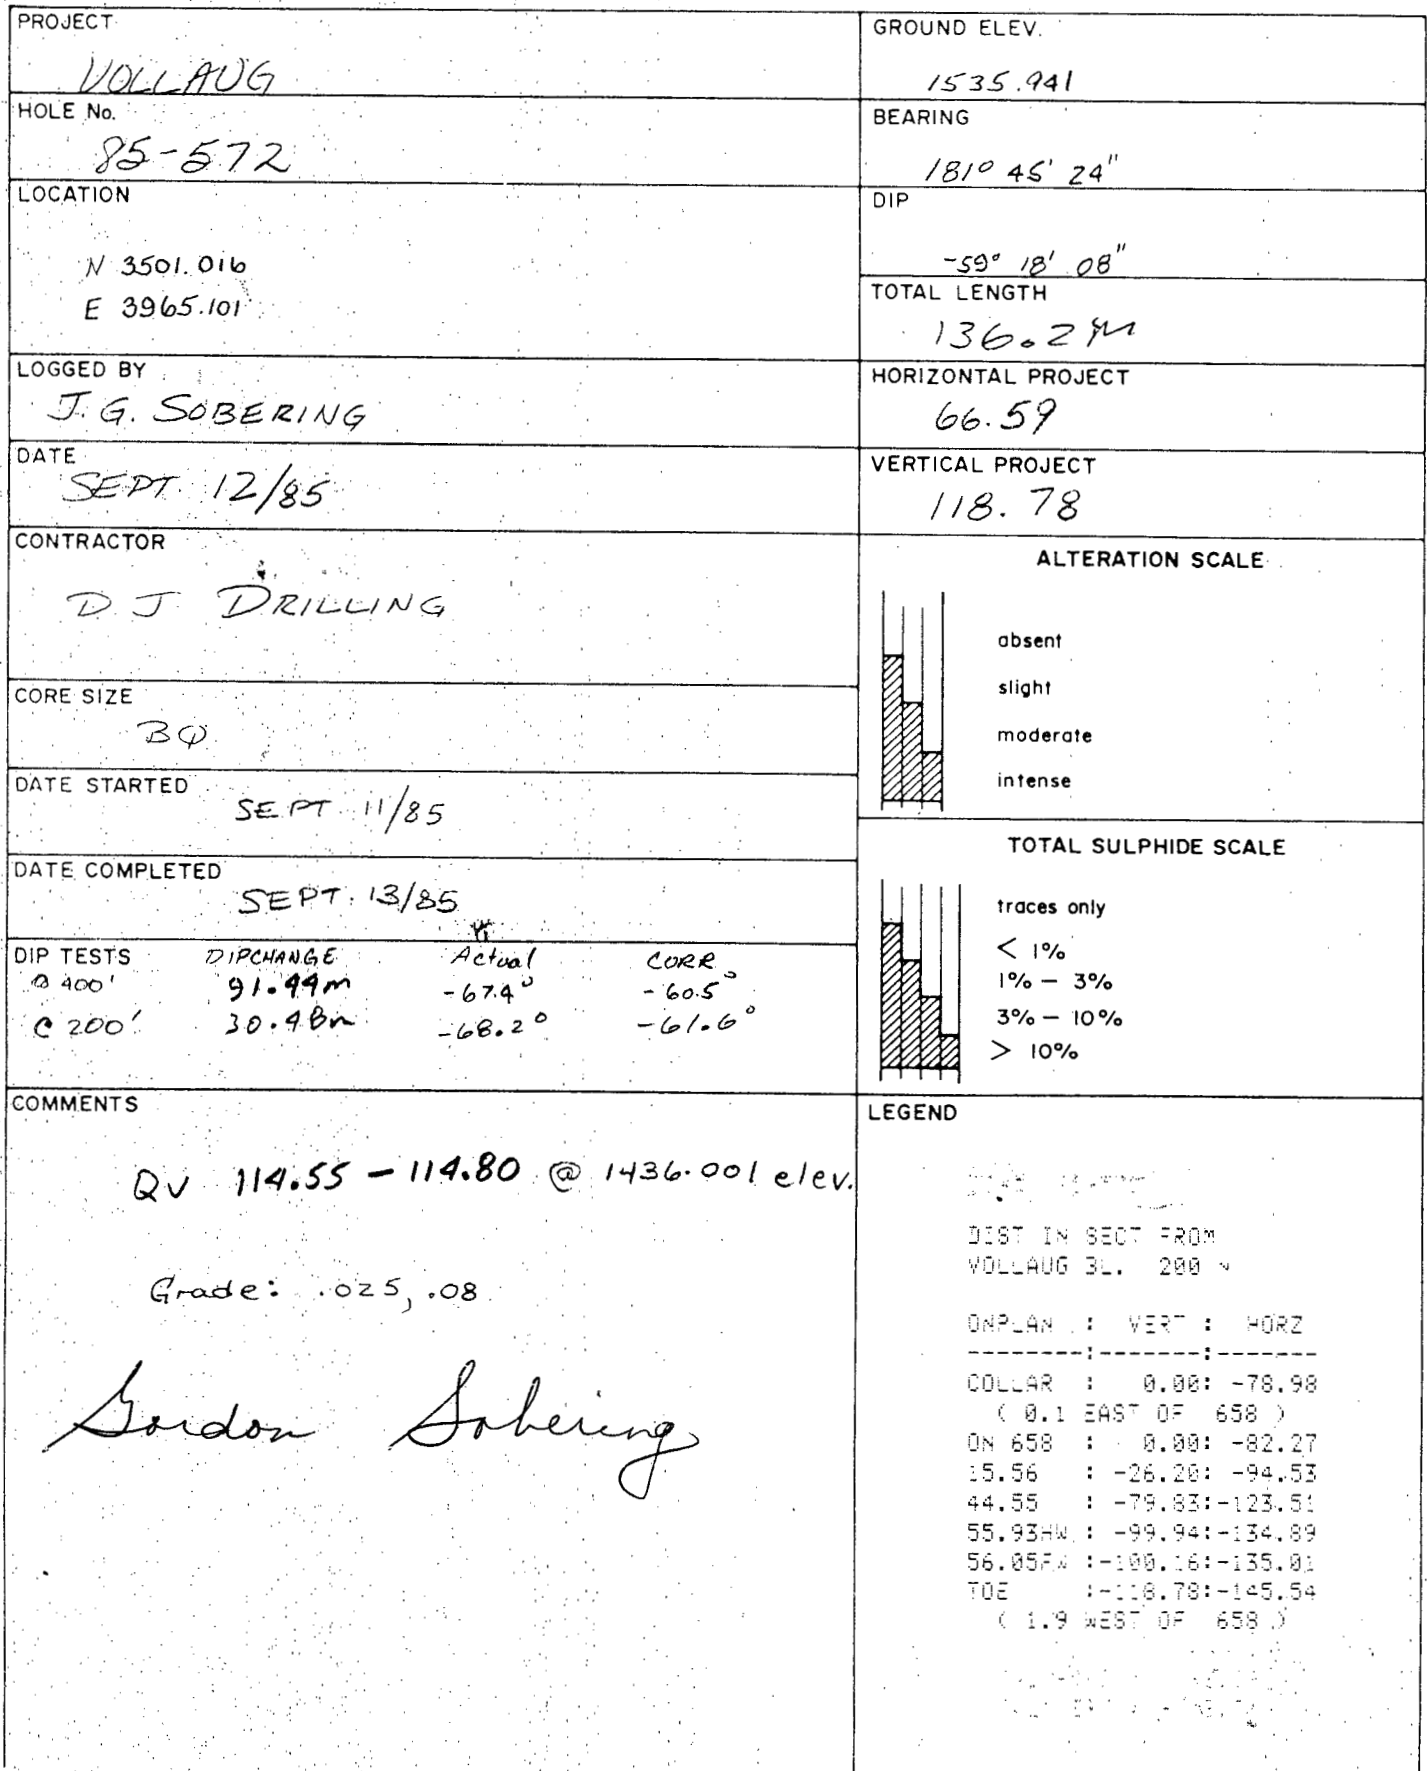 PROJECT
VOLLAUG
HOLE No.
85-572
LOCATION
N 3501.016
E 3965.101
LOGGED BY
J.G. SOBERING
DATE
SEPT. 12/85
CONTRACTOR
D J DRILLING
CORE SIZE
BQ
DATE STARTED
SEPT 11/85
DATE COMPLETED
SEPT. 13/85
DIP TESTS DIPCHANGE Actual CORR
@ 400' 91.44m -67.4° -60.5°
@ 200' 30.48m -68.2° -61.6°
COMMENTS
QV 114.55 - 114.80 @ 1436.001 elev.
Grade: .025, .08
Gordon Sobering
GROUND ELEV.
1535.941
BEARING
181° 45' 24"
DIP
-59° 18' 08"
TOTAL LENGTH
136.2 M
HORIZONTAL PROJECT
66.59
VERTICAL PROJECT
118.78
ALTERATION SCALE
absent
slight
moderate
intense
TOTAL SULPHIDE SCALE
traces only
< 1%
1% - 3%
3% - 10%
> 10%
LEGEND
DIST IN SECT FROM
VOLLAUG BL. 200
ONPLAN : VERT : HORZ
--------:-------:-------
COLLAR : 0.00: -78.98
( 0.1 EAST OF 658 )
ON 658 : 0.00: -82.27
15.56 : -26.20: -94.53
44.55 : -79.83:-123.51
55.93HW : -99.94:-134.89
56.05FW :-100.16:-135.01
TOE :-118.78:-145.54
( 1.9 WEST OF 658 )